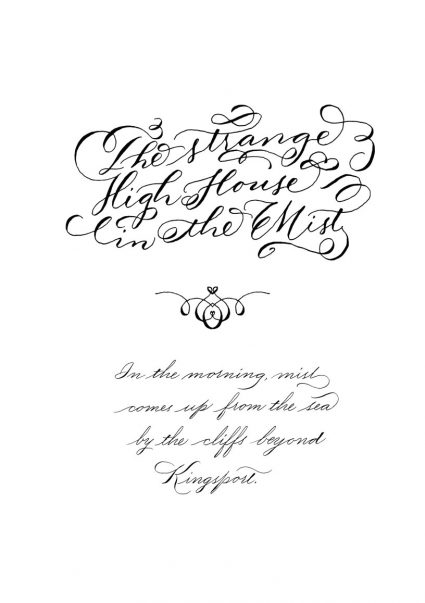 The strange
High House
in the Mist
In the morning, mist
comes up from the sea
by the cliffs beyond
Kingsport.